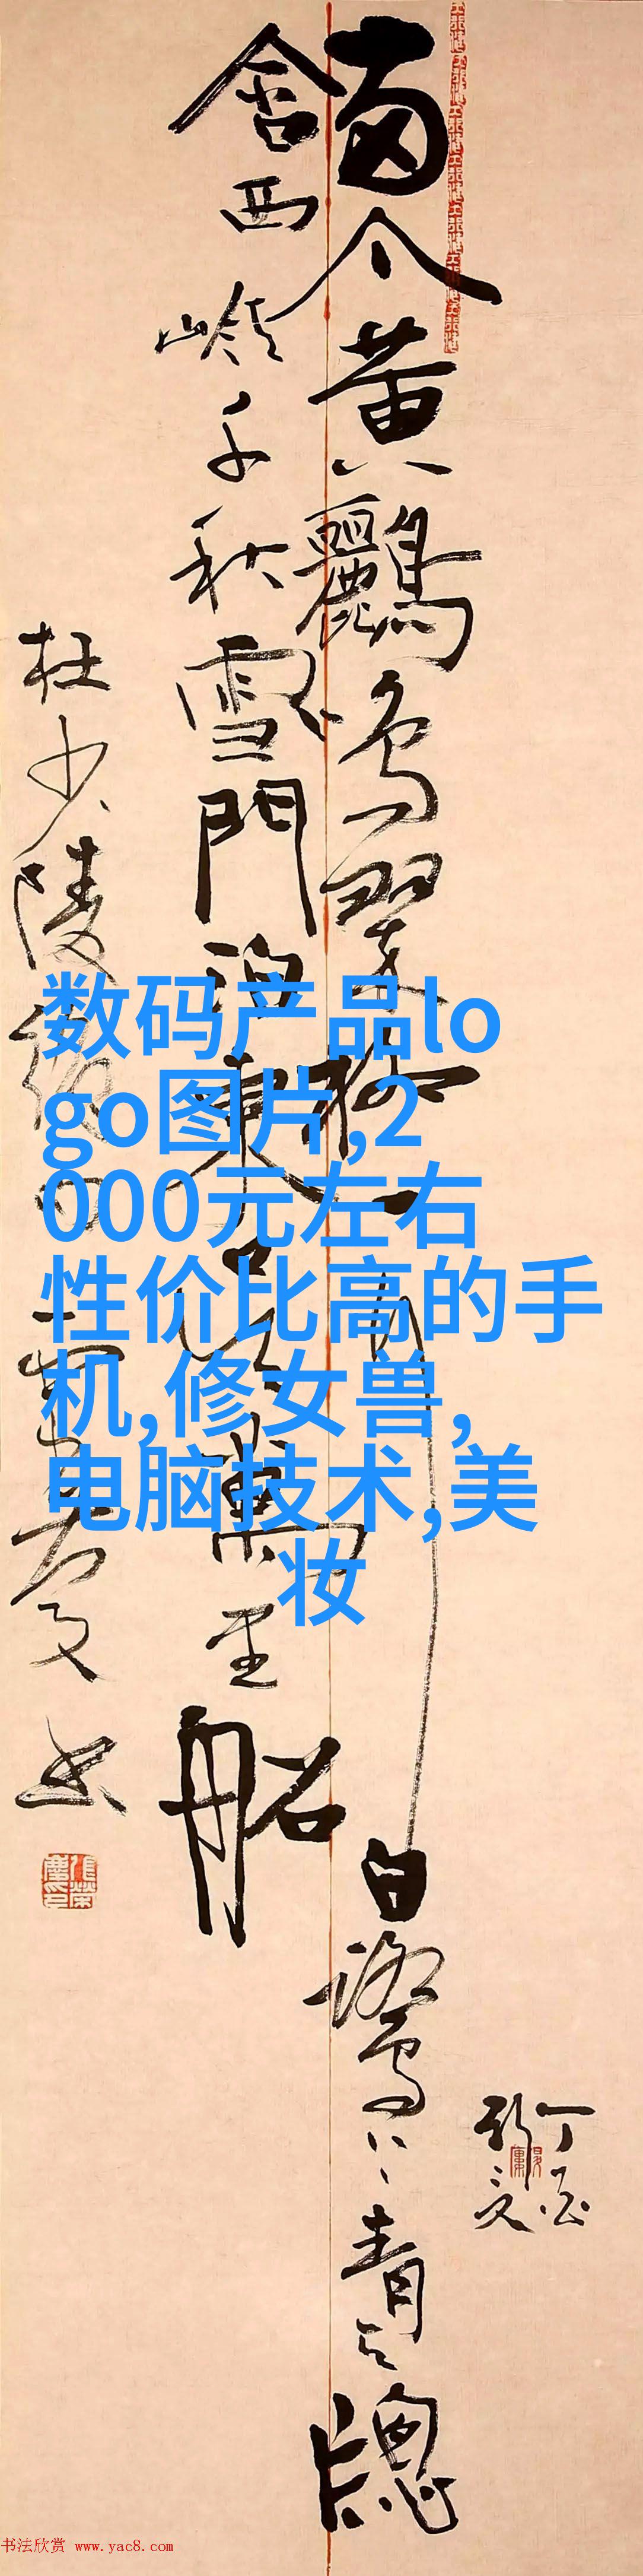 兩个黃鸝鳴翠柳一行白鷺上青天牕
含西嶺千秋雪門泊東吳萬里船
杜少陵絕句
数码产品lo
go图片,2
000元左右
性价比高的手
机,修女兽,
电脑技术,美
妆
书法欣赏 www.yac8.com